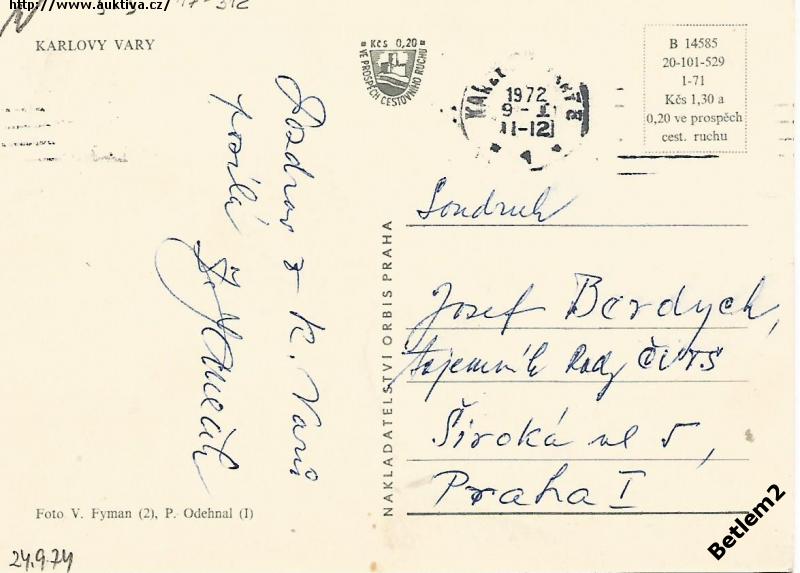 http://www.auktiva.cz/
KARLOVY VARY
Kčs 0,20
VE PROSPĚCH CESTOVNÍHO RUCHU
1972
11-12
B 14585
20-101-529
1-71
Kčs 1,30 a
0,20 ve prospěch
cest. ruchu
Pozdrav z K. Varů
posílá
NAKLADATELSTVÍ ORBIS PRAHA
Soudruh
Josef Berdych,
tajemník Rady ČVTS
Široká ul 5,
Praha I
Foto V. Fyman (2), P. Odehnal (I)
24.9.74
Betlem2